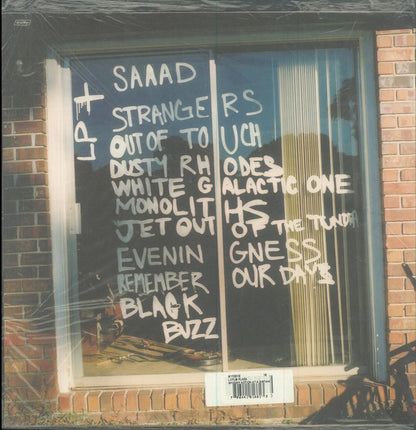 LP 1
SAAAD
STRANGERS
OUT OF TOUCH
DUSTY RHODES
WHITE GALACTIC ONE
MONOLITHS
JET OUT OF THE TUNDRA
EVENINGNESS
REMEMBER OUR DAYS
BLACK
BUZZ